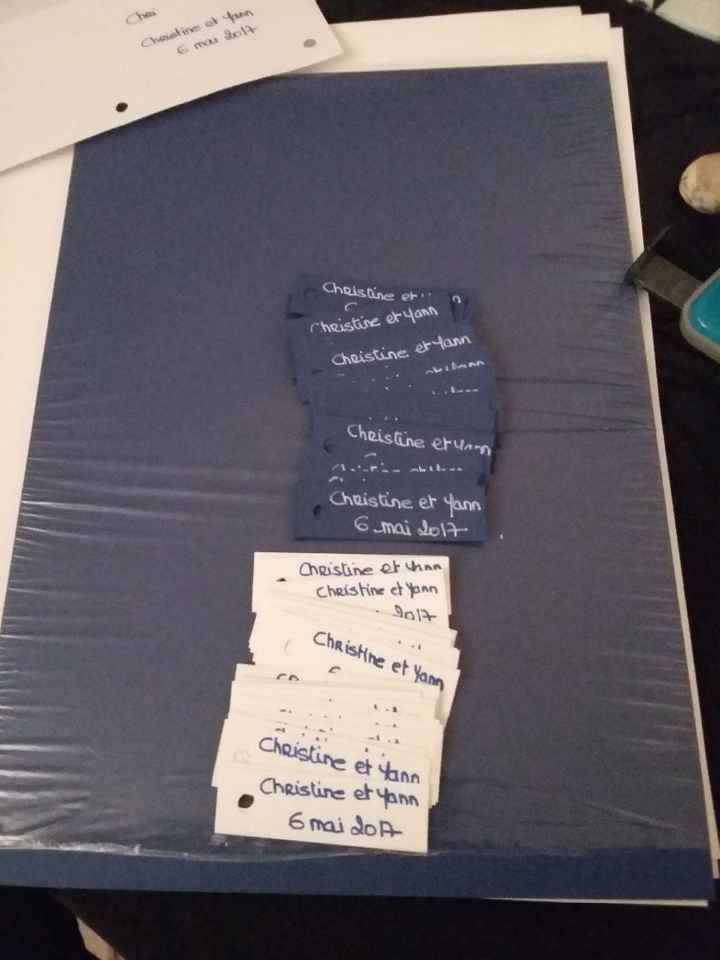 Chri
Christine et Yann
6 mai 2017
Christine et
Christine et Yann
Christine et Yann
Christine et Yann
Christine et Yann
6 mai 2017
Christine et Yann
Christine et Yann
2017
Christine et Yann
Christine et Yann
Christine et Yann
6 mai 2017